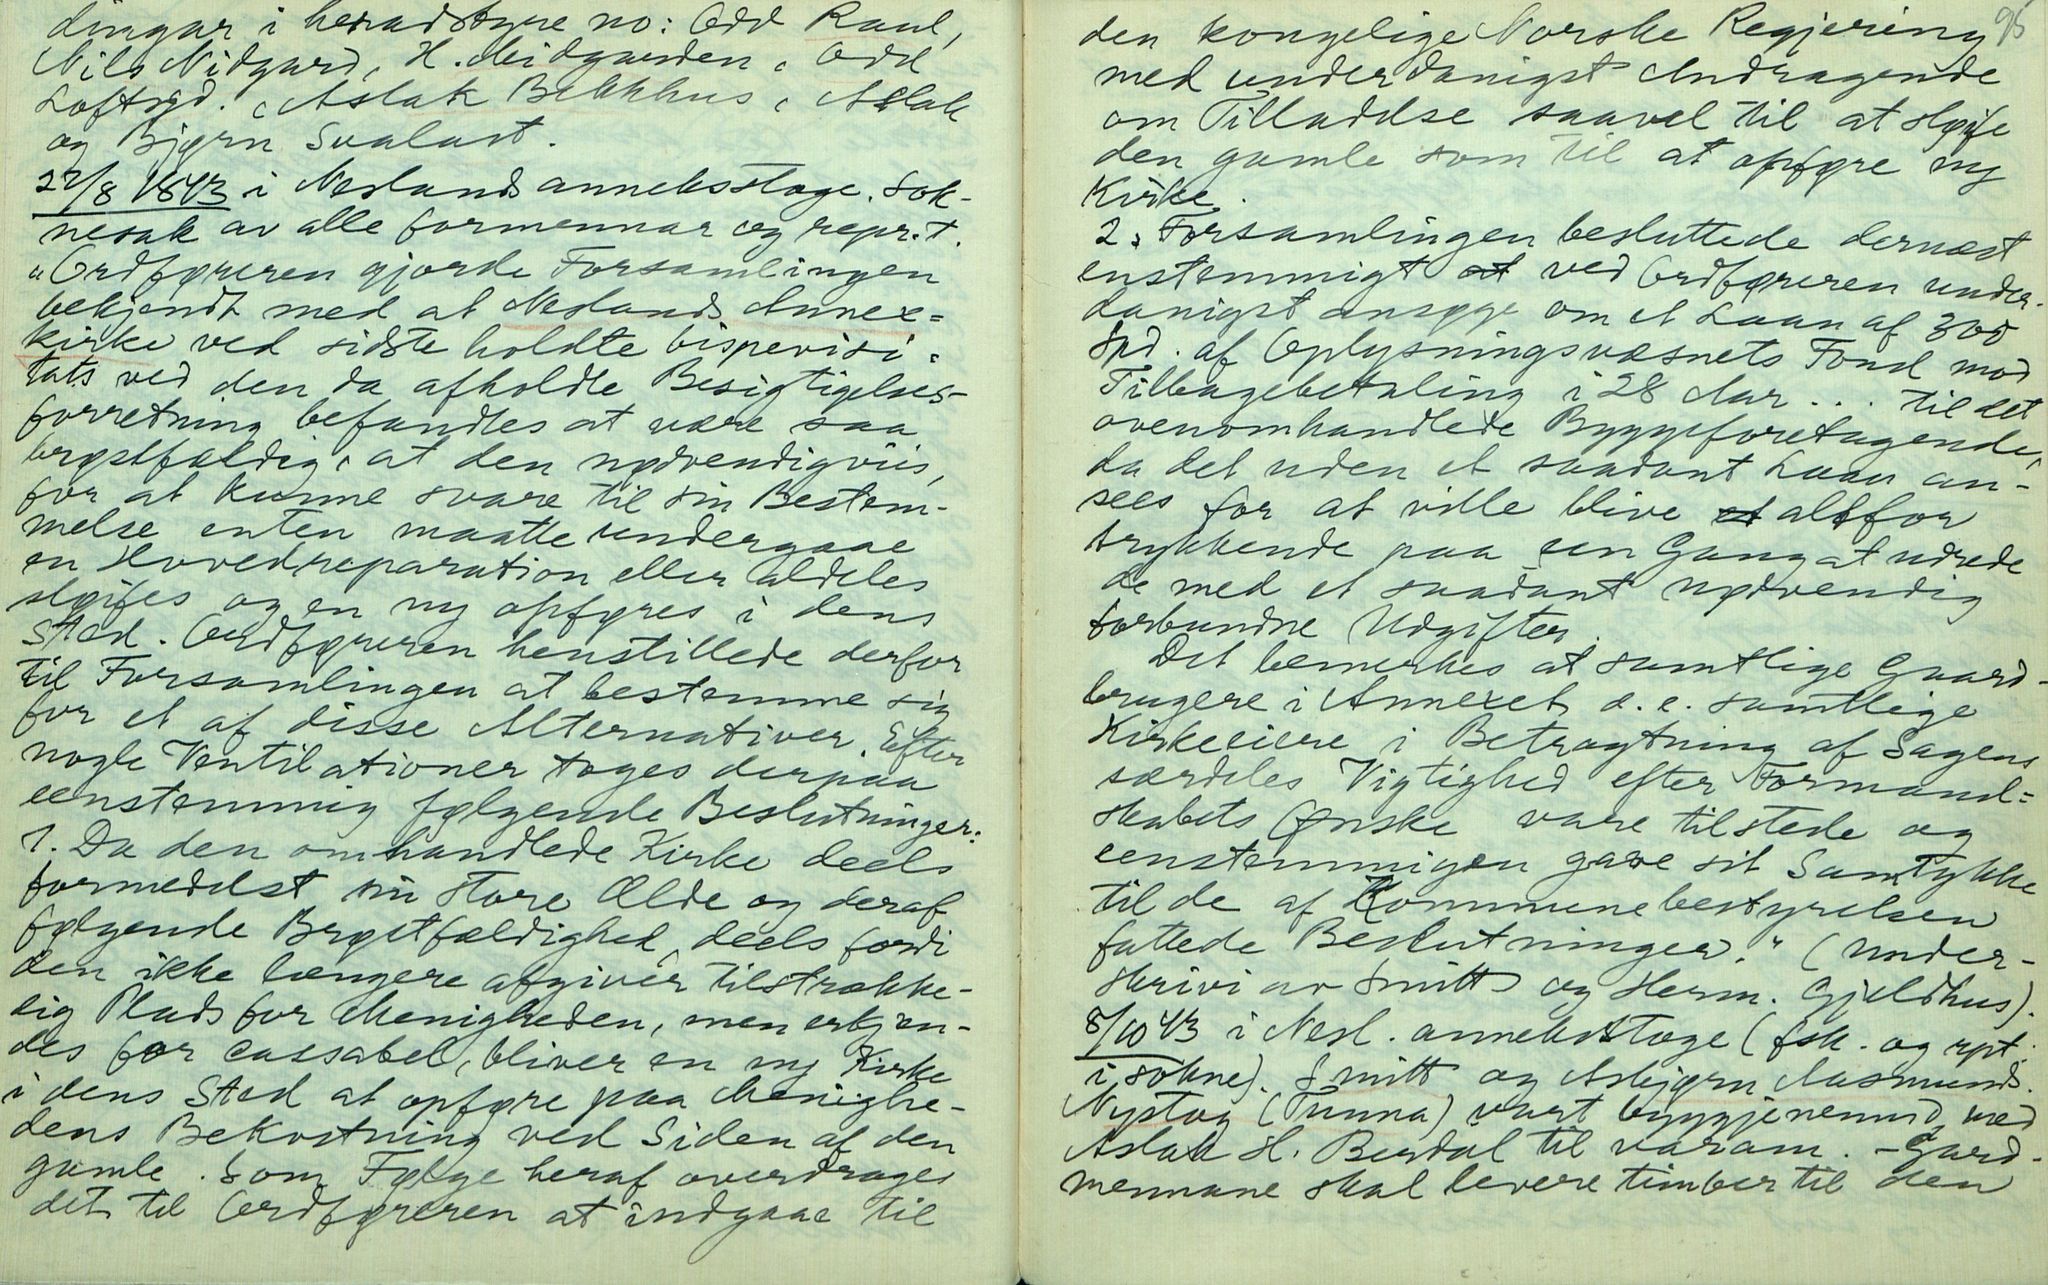 dingar i heradstyre no: Odd Raul,
Nils Nidgard, H. Midgarden, Odd
Loftsgd., Aslak Bekkhus, Aslak
og Bjørn Svalast.
27/8 1843 i Neslands anneksstoge. Sok-
nesak av alle formennar og repr.t.
"Ordføreren gjorde Forsamlingen
bekjendt med at Neslands Annex=
kirke ved sidste holdte bispevisi-
tats ved den da afholdte Besigtigelses-
forretning befandtes at være saa
brøstfældig, at den nødvendigviis,
for at kunne svare til sin Bestem-
melse enten maatte undergaae
en Hovedreparation eller aldeles
sløifes og en ny opføres i dens
Sted. Ordføreren henstillede derfor
til Forsamlingen at bestemme sig
for et af disse Alternativer. Efter
nogle Ventilationer toges derpaa
eenstemmig følgende Beslutninger:
1. Da den omhandlede Kirke deels
formedelst sin store Ælde og deraf
følgende Brøstfældighed, deels fordi
den ikke længere afgiver tilstrække-
lig Plads for Menigheden, men erkjen-
des for cassabel, bliver en ny Kirke
i dens Sted at opføre paa Menighe-
dens Bekostning ved Siden af den
gamle. Som Følge heraf overdrages
det til Ordføreren at indgaae til
95
den kongelige Norske Regjering
med underdanigst Andragende
om Tilladelse saavel til at sløife
den gamle som til at opføre ny
Kirke.
2. Forsamlingen besluttede dernæst
enstemmigt at ved Ordføreren under-
danigst ansøge om et Laan af 300
Spd. af Oplysningsvæsnets Fond mod
Tilbagebetaling i 28 Aar... til det
ovenomhandlede Byggeforetagende,
da det uden et saadant Laan an-
sees for at ville blive et altfor
trykkende paa een Gang at udrede
de med et saadant nødvendig
forbundne Udgifter.
Det bemerkes at samtlige Gaard-
brugere i Annexet, d.e. samtlige
Kirkeeiere i Betragtning af Sagens
særdeles Vigtighed efter Formand=
skabets Ønske vare tilstede og
eenstemmigen gave sit Samtykke
til de af Kommunebestyrelsen
fattede Beslutninger." (Under-
skrivi av Smitt og Herm. Gjeldhus).
8/10 43 i Nesl. anneksstoge (fsk. og rpt.
i sokne). Smitt og Asbjørn Aasmunds.
Nystog (Tunna) vart byggjenemnd med
Aslak H. Berdal til varam. - Gard-
mennane skal levere timber til den